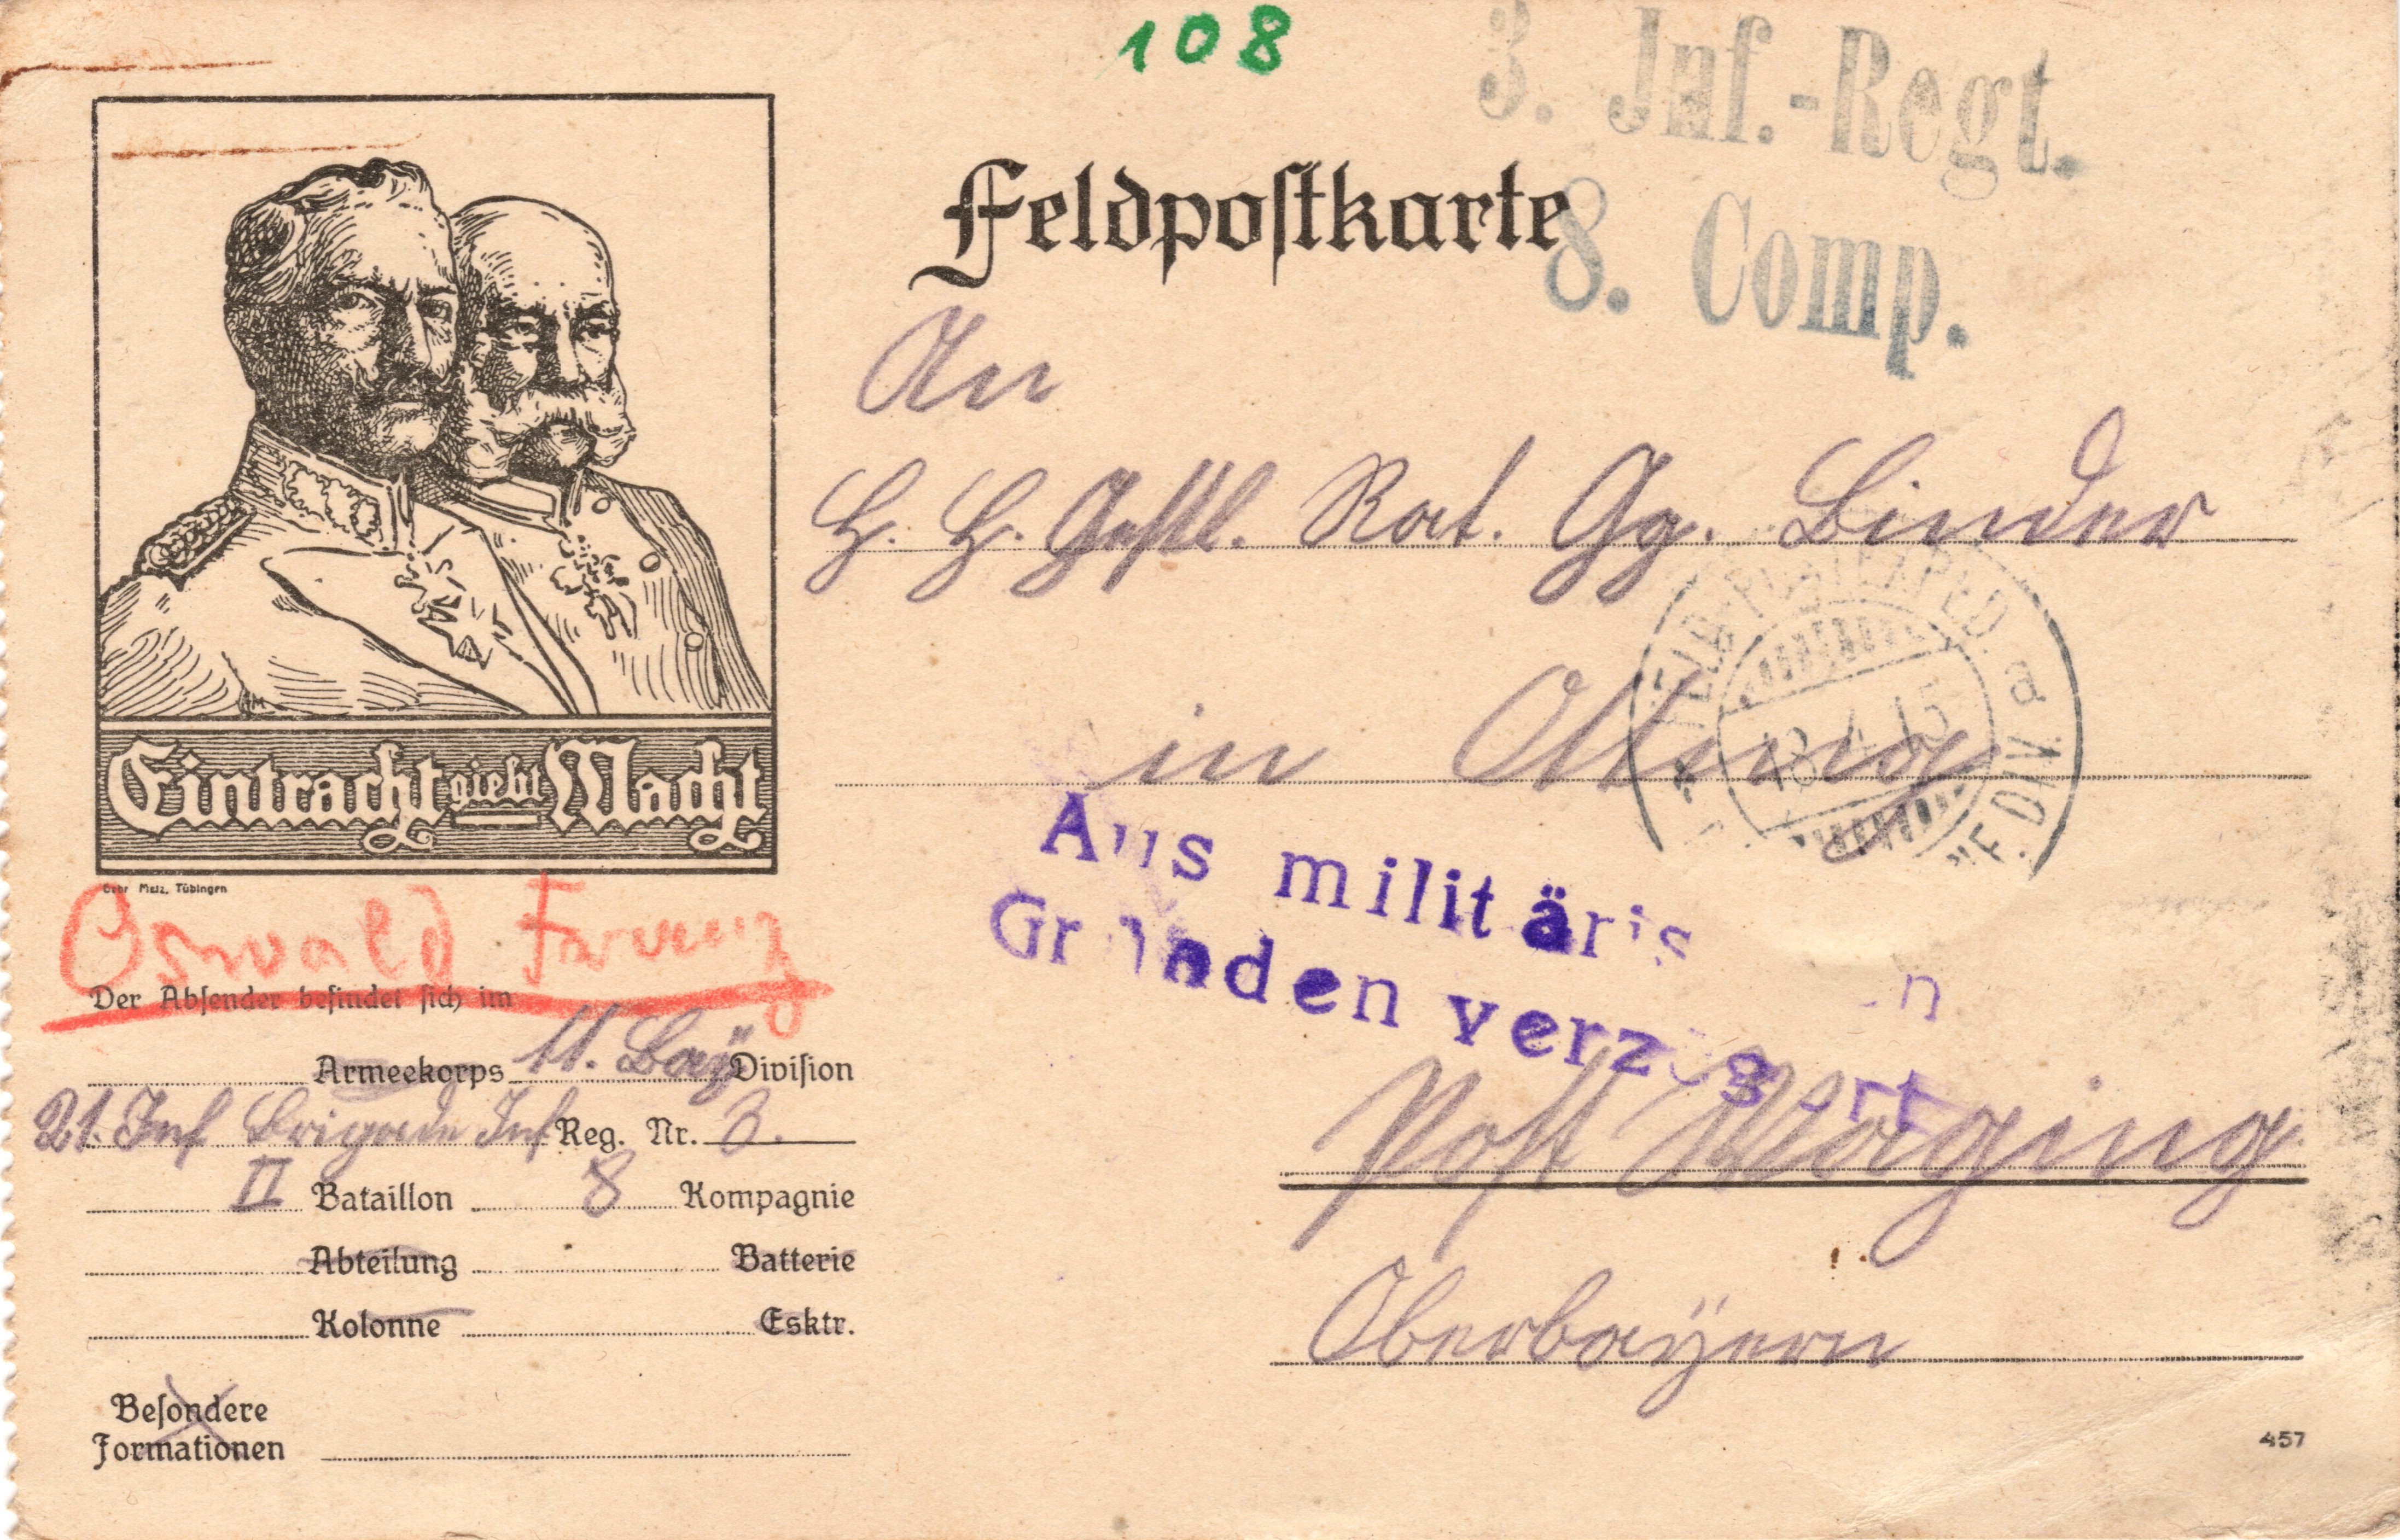 108
3. Inf.-Regt.
8. Comp.
Feldpostkarte
An
H. H. Geistl. Rat. Gg. Binder
in Otting
FELD-POSTEXPED. a
18.4.15
F. DIV.
Eintracht giebt Macht
Gebr Metz, Tübingen
Aus militäris n
Gründen verzögert
Oswald Franz
Der Absender befindet sich im
Armeekorps 11. Bay Division
21. Inf Brigade Inf Reg. Nr. 3.
II Bataillon 8 Kompagnie
Abteilung Batterie
Kolonne Esktr.
Besondere
Formationen
Post Waging
Oberbayern
457